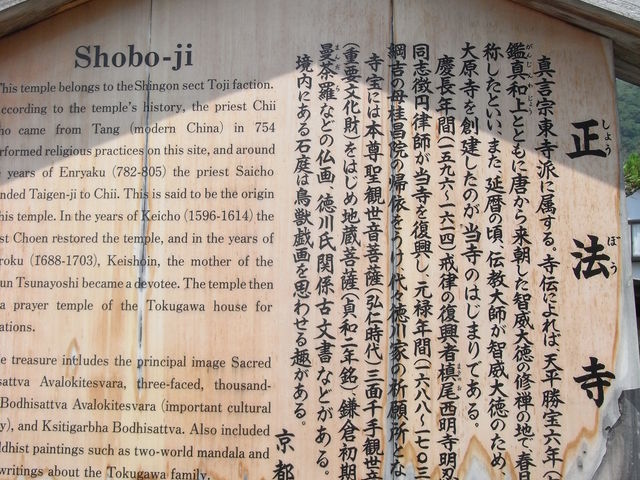 Shobo-ji
This temple belongs to the Shingon sect Toji faction.
ccording to the temple's history, the priest Chii
ho came from Tang (modern China) in 754
rformed religious practices on this site, and around
years of Enryaku (782-805) the priest Saicho
nded Taigen-ji to Chii. This is said to be the origin
his temple. In the years of Keicho (1596-1614) the
st Choen restored the temple, and in the years of
roku (1688-1703), Keishoin, the mother of the
un Tsunayoshi became a devotee. The temple then
a prayer temple of the Tokugawa house for
ations.
e treasure includes the principal image Sacred
sattva Avalokitesvara, three-faced, thousand-
Bodhisattva Avalokitesvara (important cultural
y), and Ksitigarbha Bodhisattva. Also included
dhist paintings such as two-world mandala and
writings about the Tokugawa family.
正法寺
しょう ぼう
真言宗東寺派に属する。寺伝によれば、天平勝宝六年(
鑑真和上とともに唐から来朝した智威大徳の修禅の地で、春日
がんじん わじょう
称したという。また、延暦の頃、伝教大師が智威大徳のため、
大原寺を創建したのが当寺のはじまりである。
慶長年間(一五九六〜一六一四)戒律の復興者槙尾西明寺明忍
まきのお
同志徴円律師が当寺を復興し、元禄年間(一六八八〜一七〇三
綱吉の母桂昌院の帰依をうけ、代々徳川家の祈願所とな
寺宝には本尊聖観世音菩薩(弘仁時代)三面千手観世音
(重要文化財)をはじめ地蔵菩薩(貞和二年銘)(鎌倉初期
曼荼羅などの仏画、徳川氏関係古文書などがある。
まんだら
境内にある石庭は鳥獣戯画を思わせる趣がある。
京都